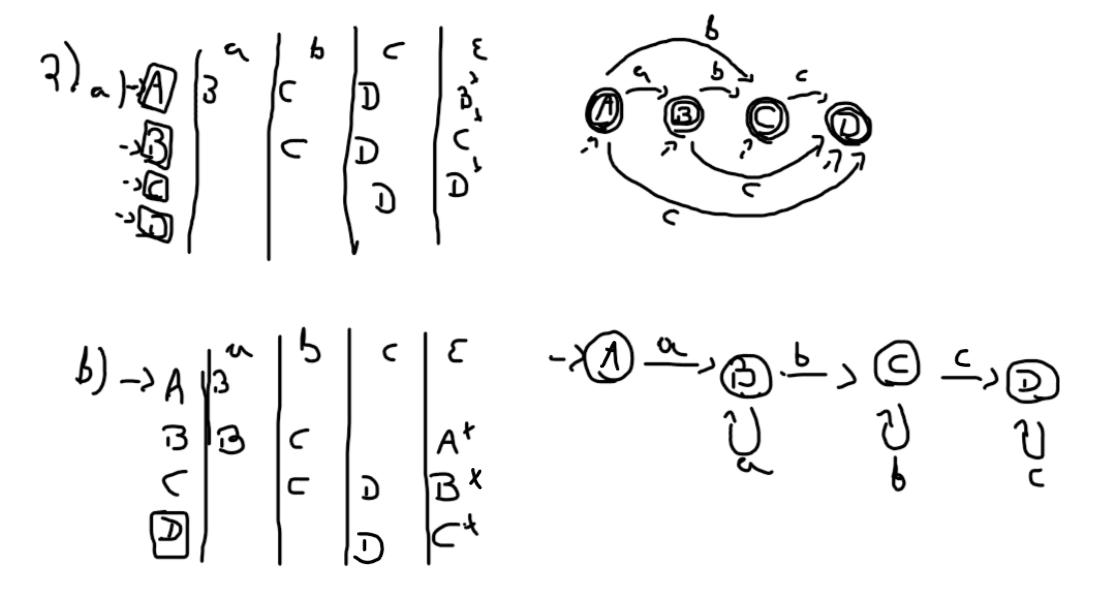 a b c ε
2) a) → A B C D B
→ B C D C
→ C D D
→ D
b
a b c
A B C D
c
c
a b c ε
b) → A B
B B C A*
C C D B*
D D C*
→ A a B b C c D
a b c